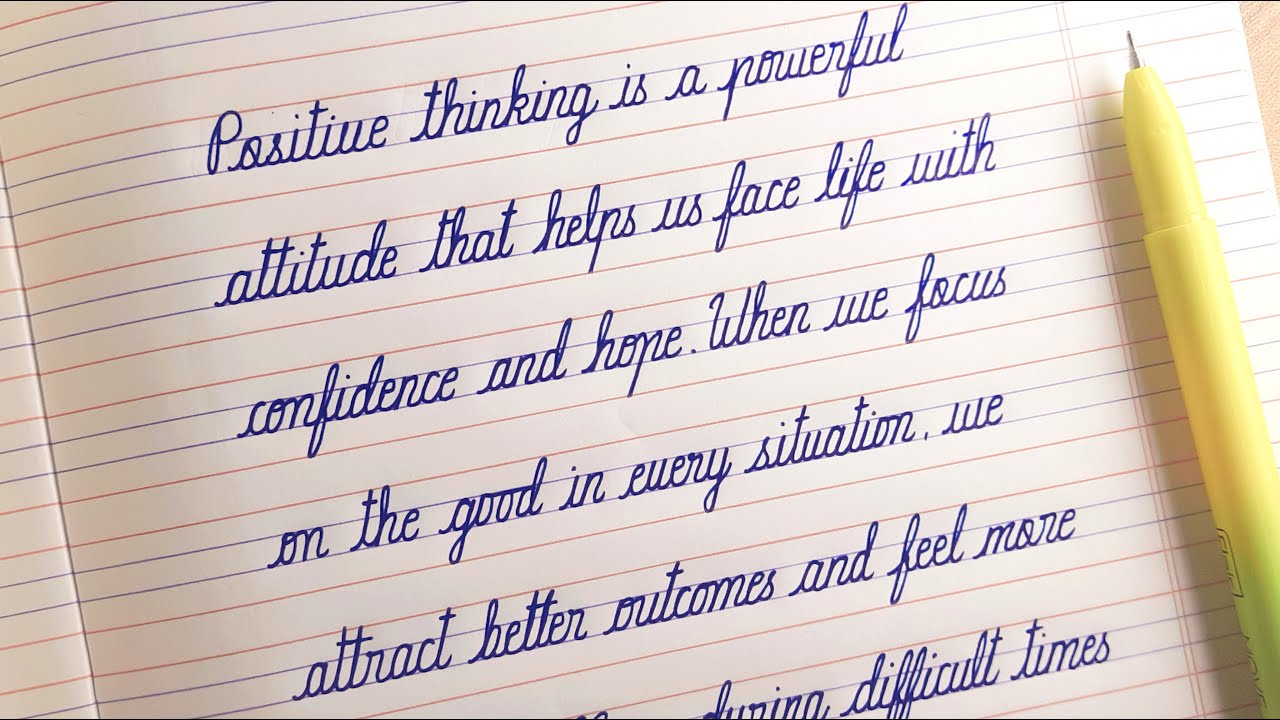 Positive thinking is a powerful
attitude that helps us face life with
confidence and hope. When we focus
on the good in every situation, we
attract better outcomes and feel more
during difficult times